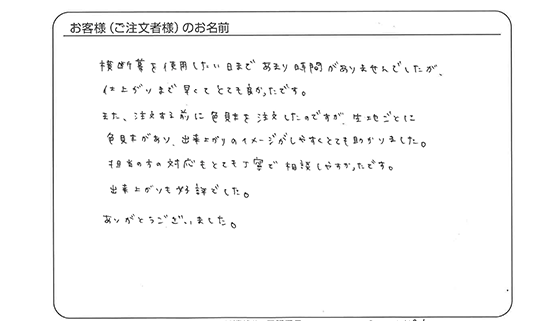 お客様(ご注文者様)のお名前
横断幕を使用したい日まであまり時間がありませんでしたが、
仕上がりまで早くてとても良かったです。
また、注文する前に色見本を注文したのですが、生地ごとに
色見本があり、出来上がりのイメージがしやすくとても助かりました。
担当の方の対応もとても丁寧で相談しやすかったです。
出来上がりも好評でした。
ありがとうございました。